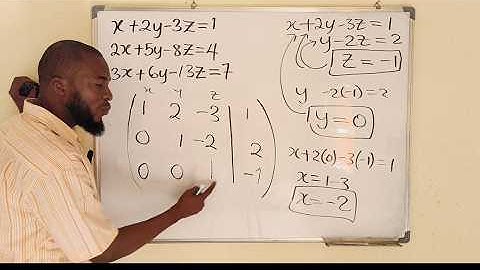 x+2y-3z=1
2x+5y-8z=4
3x+6y-13z=7
x y z
1 2 -3 1
0 1 -2 2
0 0 1 -1
x+2y-3z=1
y-2z=2
z=-1
y -2(-1)=2
y=0
x+2(0)-3(-1)=1
x=1-3
x=-2